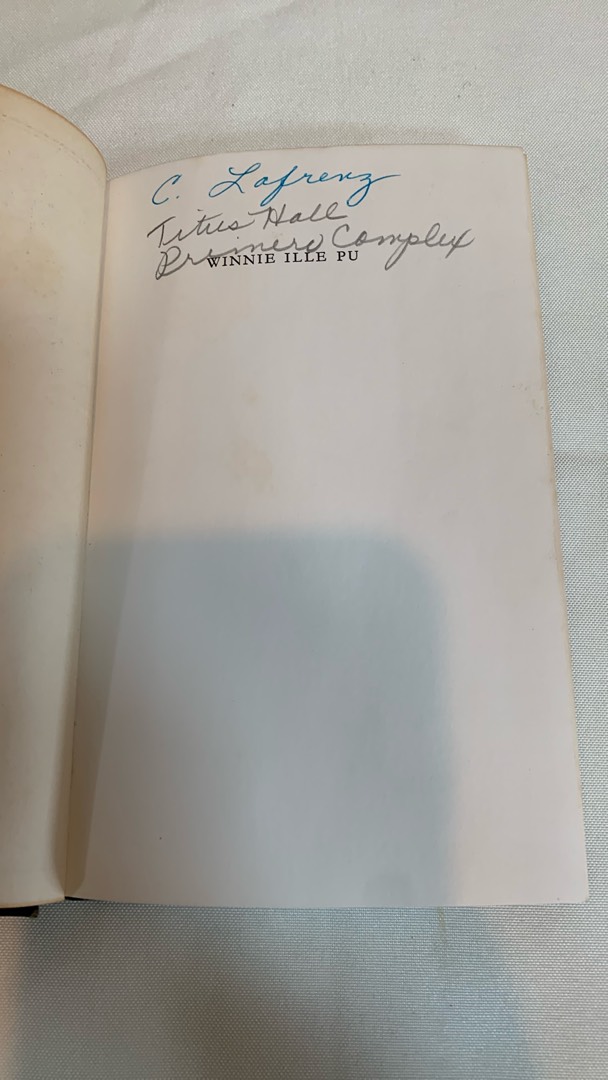 C. Lafrenz
Titus Hall
Primero Complex
WINNIE ILLE PU